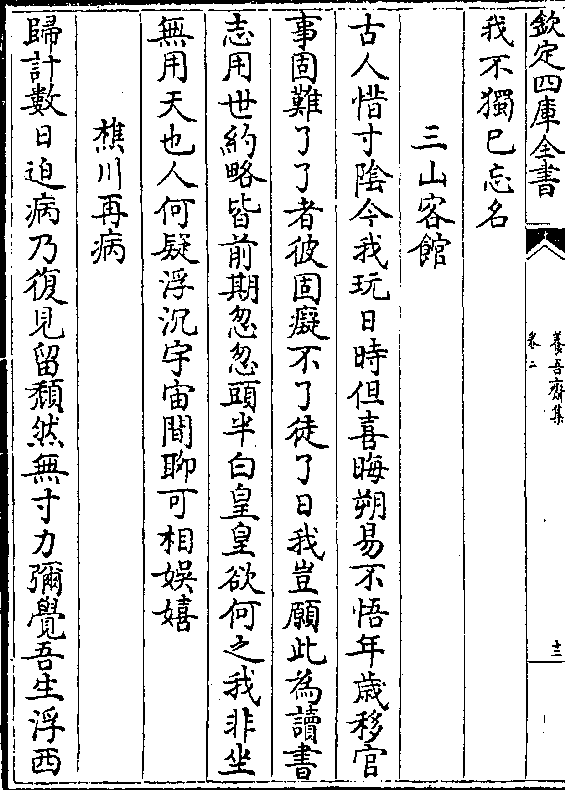 欽定四庫全書
養吾齋集
卷二
十三
我不獨已忘名
三山客館
古人惜寸陰今我玩日時但喜晦朔易不悟年歲移官
事固難了了者彼固癡不了徒了日我豈願此為讀書
志用世約略皆前期忽忽頭半白皇皇欲何之我非坐
無用天也人何疑浮沉宇宙間聊可相娛嬉
樵川再病
歸計數日迫病乃復見留頹然無寸力彌覺吾生浮西